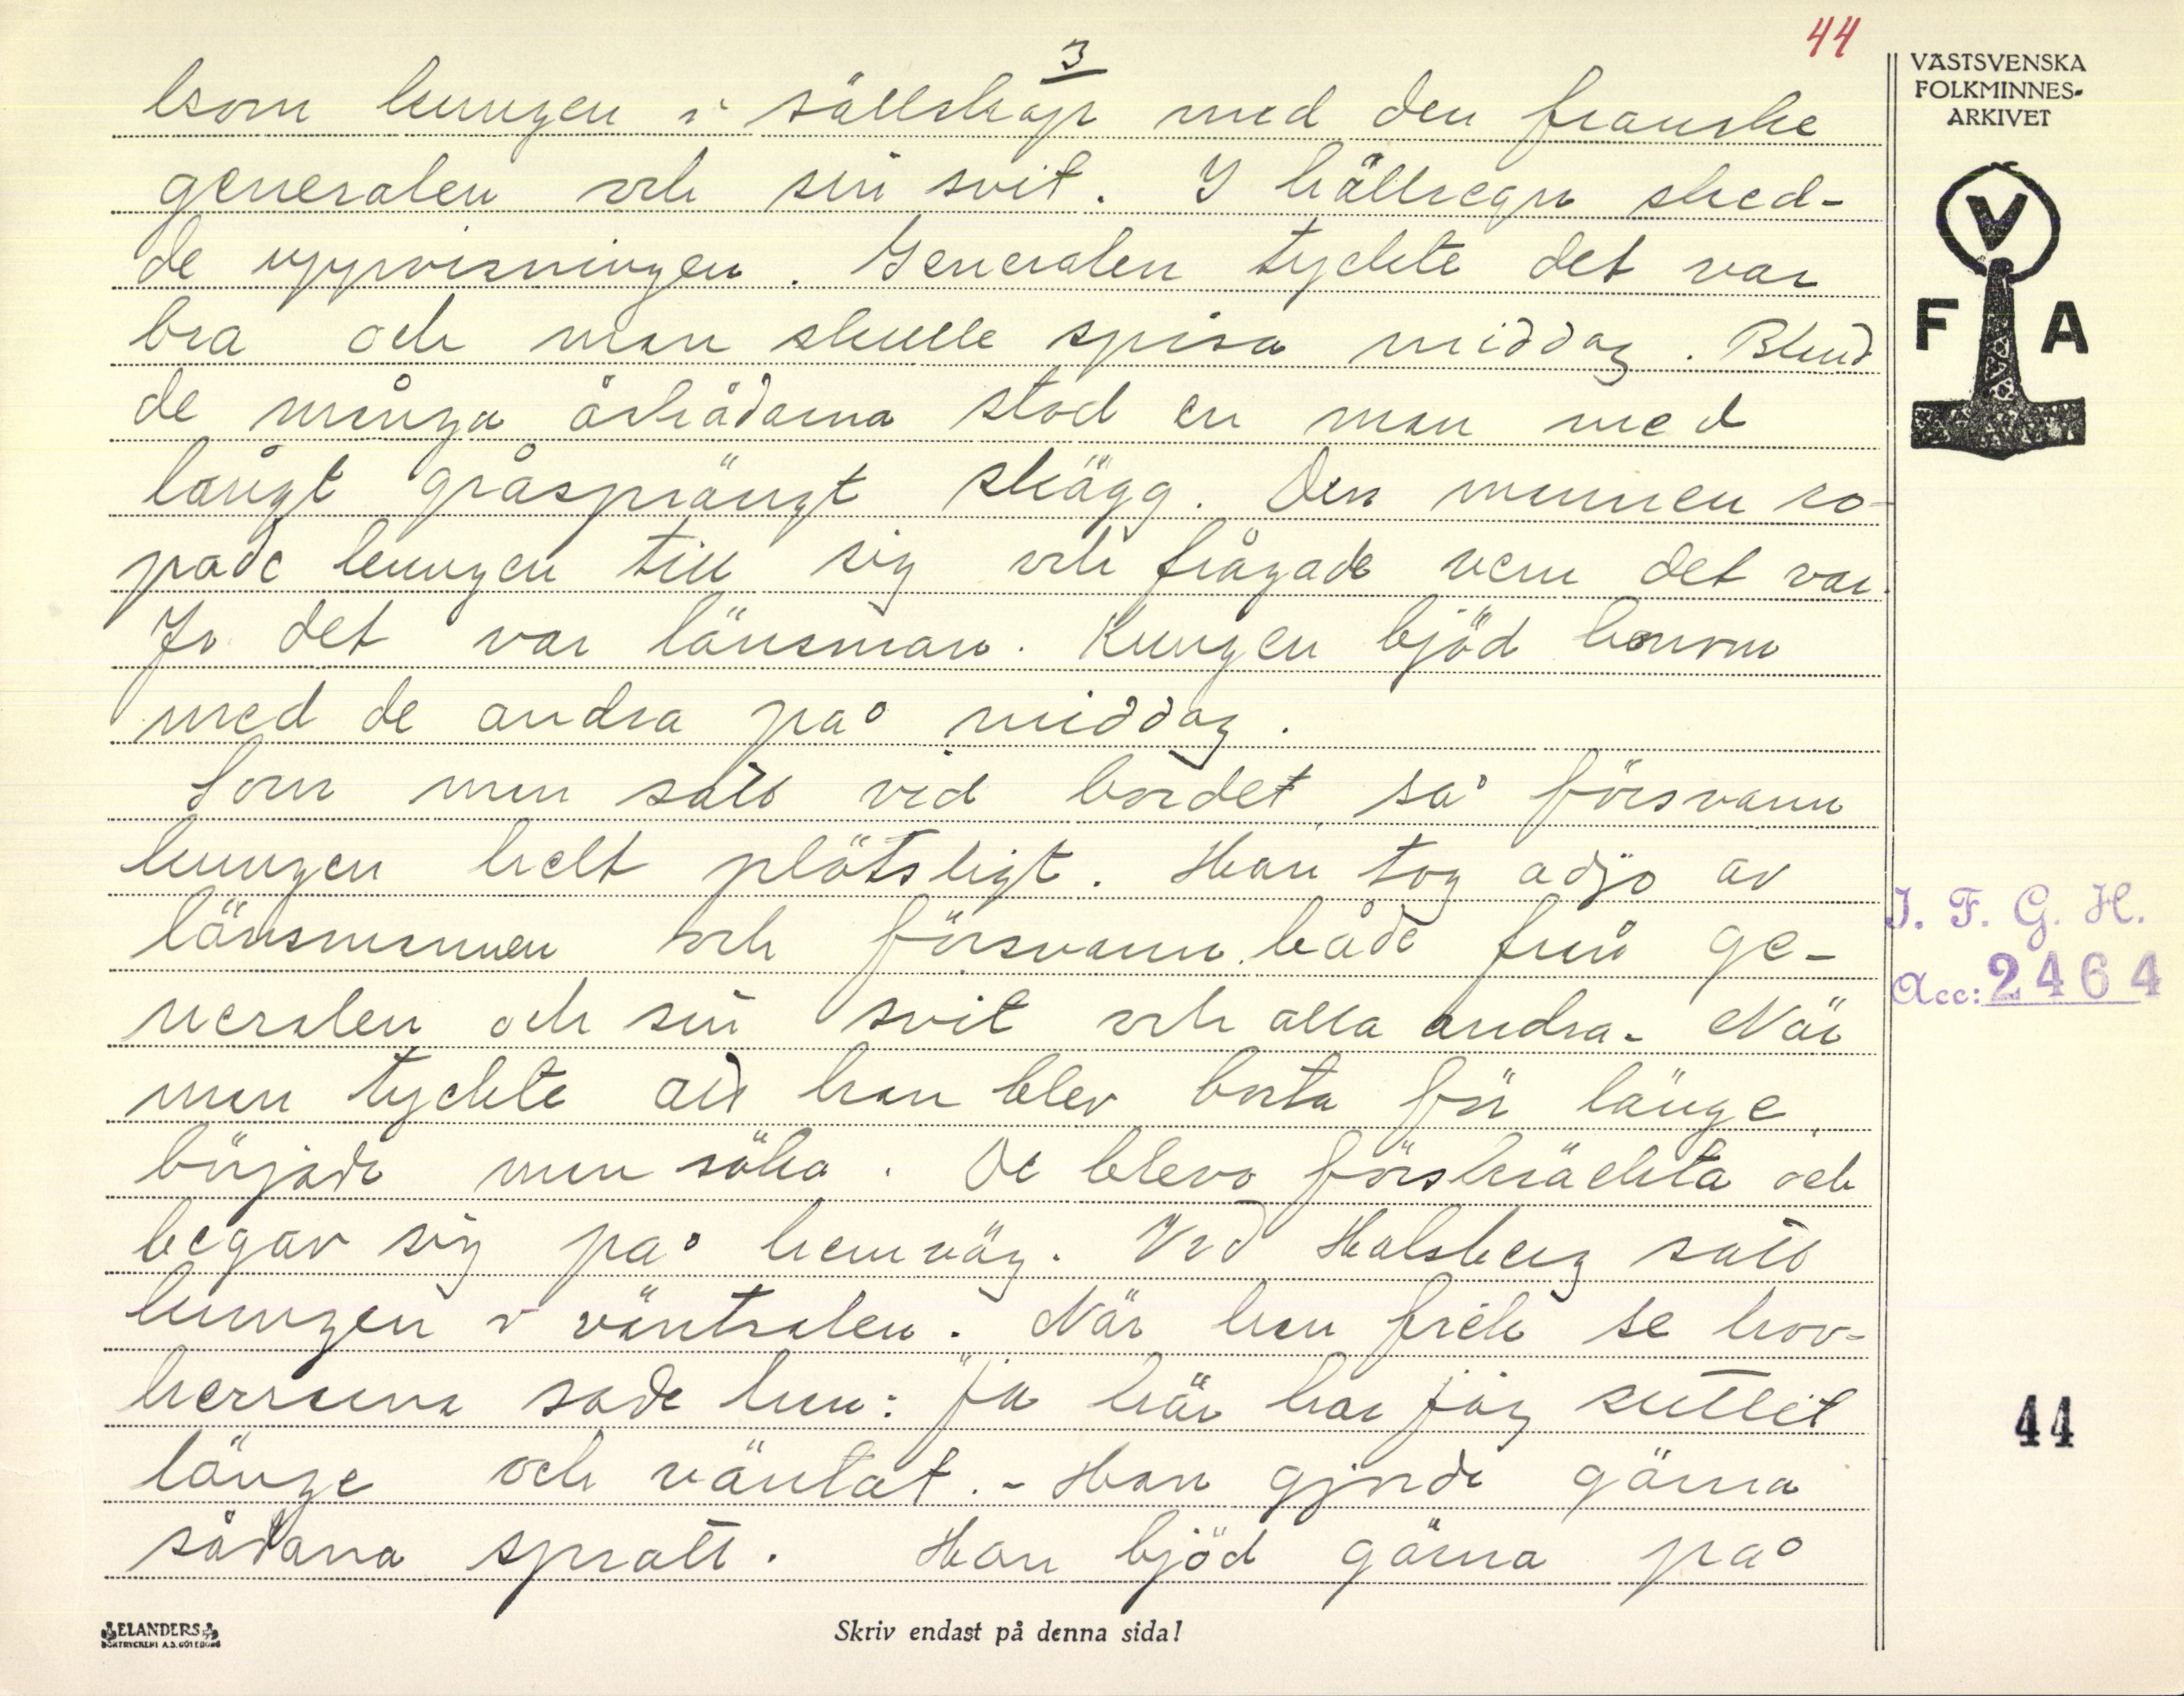 44
3
kom kungen i sällskap med den franske
generalen och sin svit. I hällregn sked-
de uppvisningen. Generalen tyckte det var
bra och man skulle spisa middag. Bland
de många åskådarna stod en man med
långt gråsprängt skägg. Den mannen ro-
pade kungen till sig och frågade vem det var.
Jo det var länsman. Kungen bjöd honom
med de andra på middag.
Som man satt vid bordet så försvann
kungen helt plötsligt. Han tog adjö av
länsmannen och försvann både från ge-
neralen och sin svit och alla andra. När
man tyckte att han blev borta för länge
började man söka. De blevo förskräckta och
begav sig på hemväg. Vid Halsberg satt
kungen i väntsalen. När han fick se hov-
herrarna sade han: "Ja här har jag suttit
länge och väntat. - Han gjorde gärna
sådana spratt. Han bjöd gärna på
VÄSTSVENSKA
FOLKMINNES-
ARKIVET
V
F A
I. F. G. H.
Acc: 2464
44
ELANDERS
BOKTRYCKERI A.B. GÖTEBORG
Skriv endast på denna sida!